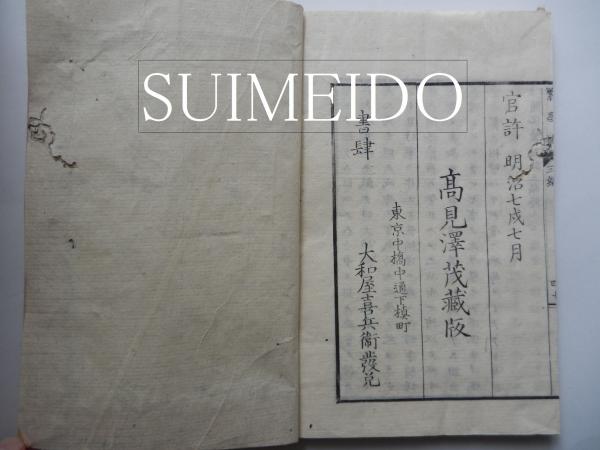 SUIMEIDO
官許 明治七戌七月
髙見澤茂藏版
東京中橋中通下槇町
書肆 大和屋喜兵衞發兌